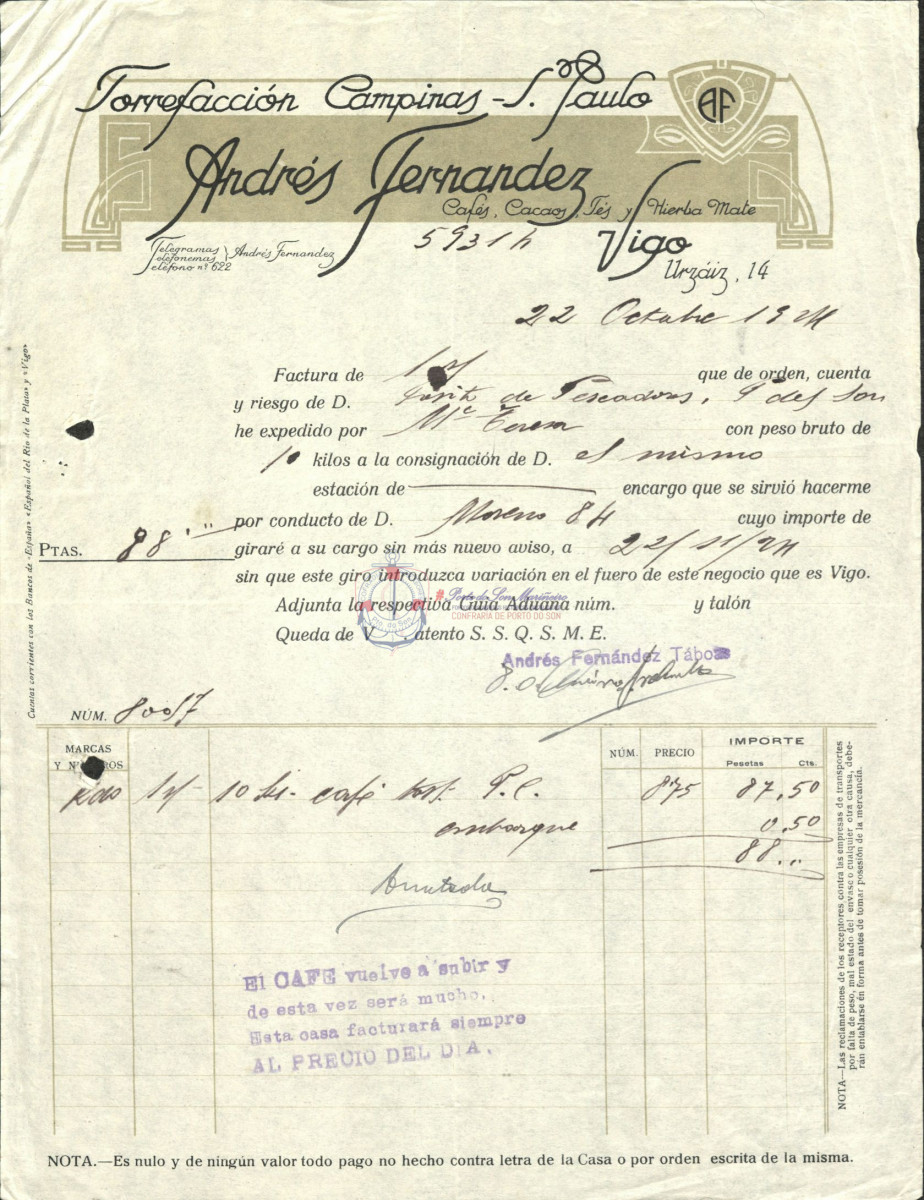 Torrefacción Campinas - S. Paulo
AF
Andrés Fernandez
Cafés, Cacaos, Tés y Hierba Mate
Telegramas
Telefonemas
Teléfono nº 622
Andrés Fernandez
5931 h
Vigo
Urzáiz, 14
22 Octubre 1924
Factura de 1 que de orden, cuenta
y riesgo de D. Pósito de Pescadores, P del Son
he expedido por Mª Teresa con peso bruto de
10 kilos a la consignación de D. el mismo
estación de encargo que se sirvió hacerme
por conducto de D. Moreno 84 cuyo importe de
PTAS. 88 giraré a su cargo sin más nuevo aviso, a 22/11/24
sin que este giro introduzca variación en el fuero de este negocio que es Vigo.
Adjunta la respectiva Guia Aduana núm. y talón
Queda de V. atento S. S. Q. S. M. E.
Porto do Son Mariñeiro
CONFRARIA DE PORTO DO SON
Andrés Fernández Táboas
Cuentas corrientes con los Bancos de «España» «Español del Río de la Plata» y «Vigo»
NÚM. 80057
MARCAS
Y NÚMEROS
NÚM. PRECIO IMPORTE
Pesetas Cts.
10 café tost. P.C. 875 87,50
embarque 0.50
88
Anotada
El CAFE vuelve a subir y
de esta vez será mucho.
Esta casa facturará siempre
AL PRECIO DEL DIA.
NOTA—Las reclamaciones de los receptores contra las empresas de transportes
por falta de peso, mal estado del envase o cualquier otra causa, debe-
rán entablarse en forma antes de tomar posesión de la mercancía.
NOTA.—Es nulo y de ningún valor todo pago no hecho contra letra de la Casa o por orden escrita de la misma.